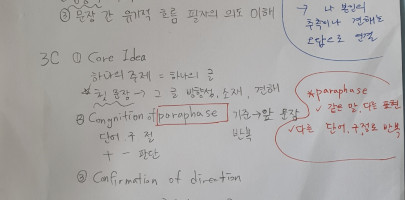 ③ 문장 간 유기적 흐름 필자의 의도 이해
→ 나 본인의
추측이나 견해는
오답으로 연결
3C ① Core Idea
하나의 주제 = 하나의 글
* 첫 문장 → 그 글 방향성, 소재, 견해
② Congnition of paraphase 기준 → 앞 문장
단어, 구, 절 반복
+ - 판단
③ Confirmation of direction
*paraphase
✓ 같은 말, 다른 표현
✓ 다른 단어, 구절로 반복